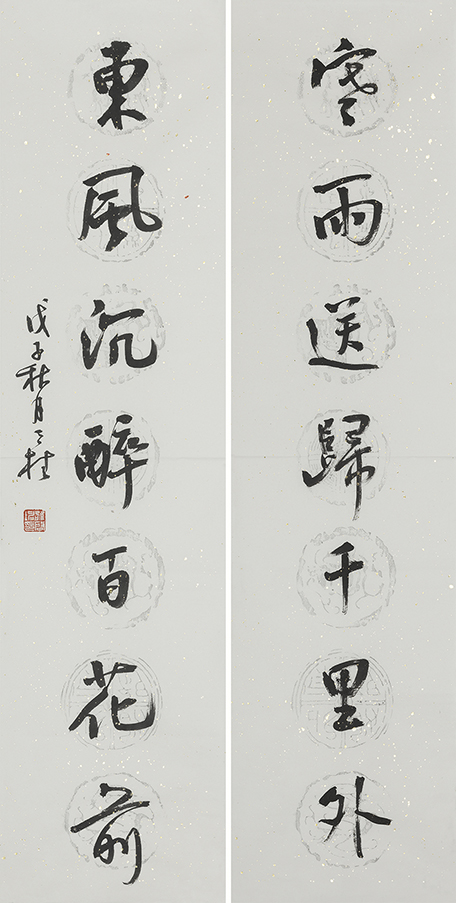 寒雨送歸千里外
東風沉醉百花前
戊子秋月之桂